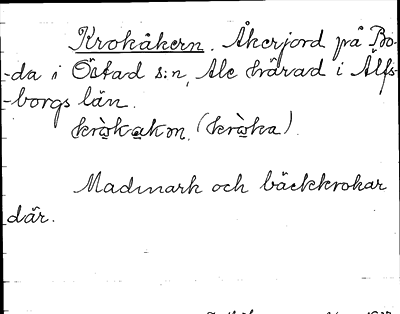 Krokåkern. Åkerjord på Bo-
-da i Östad s:n, Ale härad i Älfs-
-borgs län.
kròkakọn. (kròka).
Madmark och bäckkrokar
där.